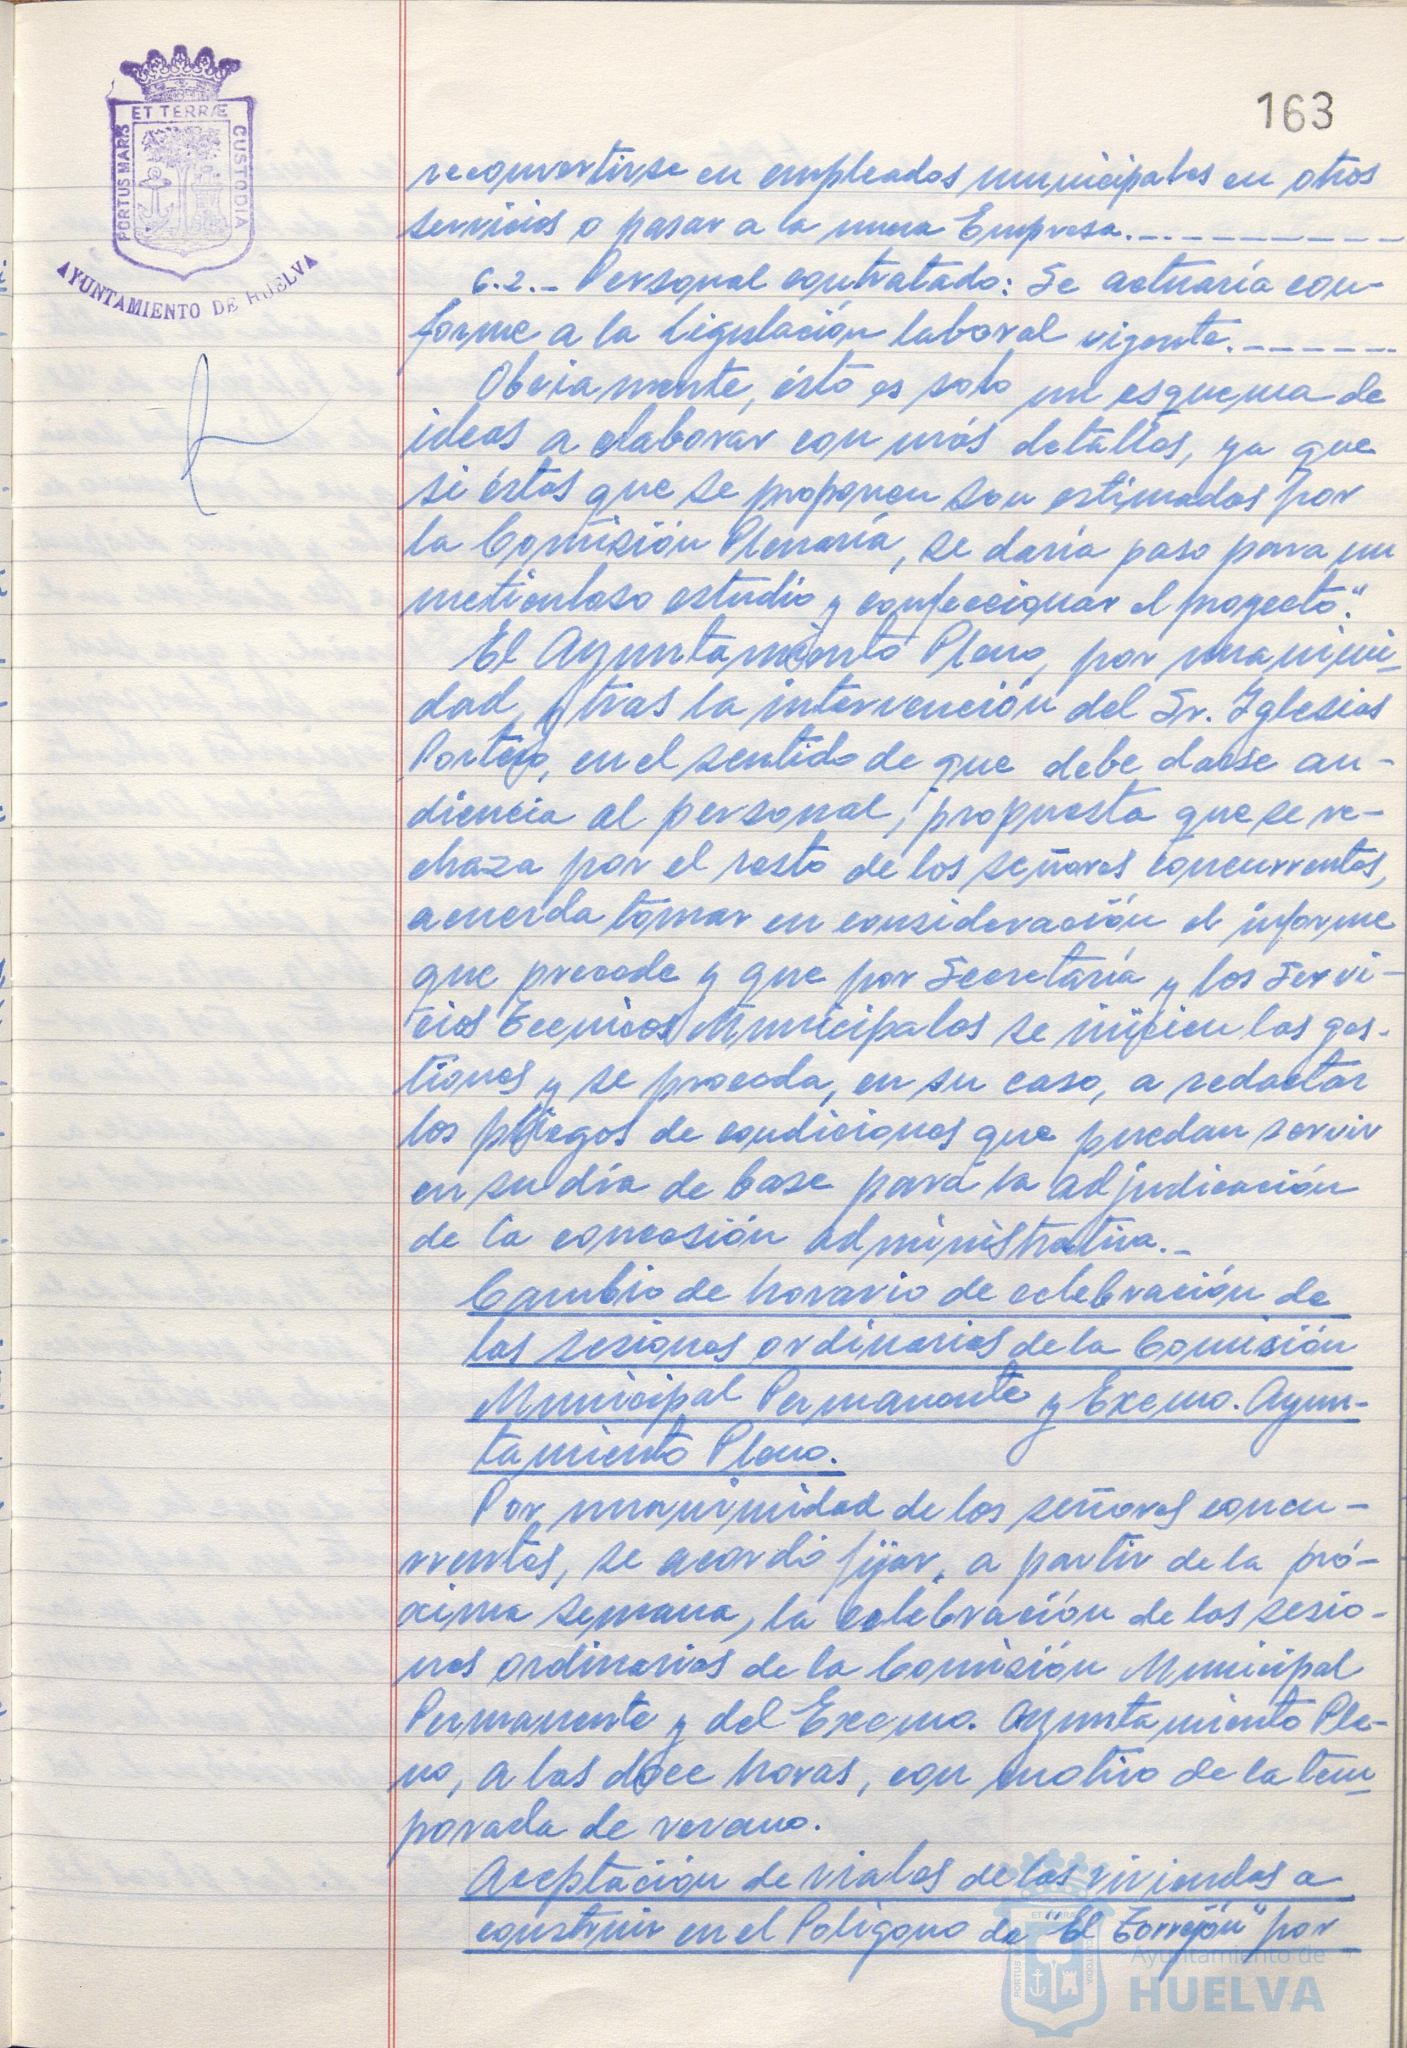 163
PORTUS MARIS ET TERRÆ CUSTODIA
AYUNTAMIENTO DE HUELVA
reconvertirse en empleados municipales en otros
servicios o pasar a la nueva Empresa.-----------
6.2.- Personal contratado: Se actuaría con-
forme a la legislación laboral vigente.-------
Obviamente, ésto es solo un esquema de
ideas a elaborar con más detalles, ya que
si éstas que se proponen son estimadas por
la Comisión Plenaria, se daría paso para un
meticuloso estudio y confeccionar el proyecto".
El Ayuntamiento Pleno, por unanimi-
dad, y tras la intervención del Sr. Iglesias
Portejo, en el sentido de que debe darse au-
diencia al personal, propuesta que se re-
chaza por el resto de los señores concurrentes,
acuerda tomar en consideración el informe
que precede y que por Secretaría y los Servi-
cios Tecnicos Municipales se inicien las ges-
tiones y se proceda, en su caso, a redactar
los pliegos de condiciones que puedan servir
en su día de base para la adjudicación
de la concesión administrativa.-
Cambio de horario de celebración de
las sesiones ordinarias de la Comisión
Municipal Permanente y Excmo. Ayun-
tamiento Pleno.
Por unanimidad de los señores concu-
rrentes, se acordó fijar, a partir de la pró-
xima semana, la celebración de las sesio-
nes ordinarias de la Comisión Municipal
Permanente y del Excmo. Ayuntamiento Ple-
no, a las doce horas, con motivo de la tem-
porada de verano.
Aceptación de viales de las viviendas a
construir en el Polígono de "El Torrejón" por
Ayuntamiento de
HUELVA